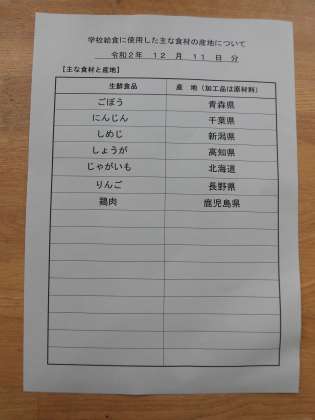 学校給食に使用した主な食材の産地について
令和2年 12 月 11 日 分
【主な食材と産地】
生鮮食品 産 地（加工品は原材料）
ごぼう 青森県
にんじん 千葉県
しめじ 新潟県
しょうが 高知県
じゃがいも 北海道
りんご 長野県
鶏肉 鹿児島県